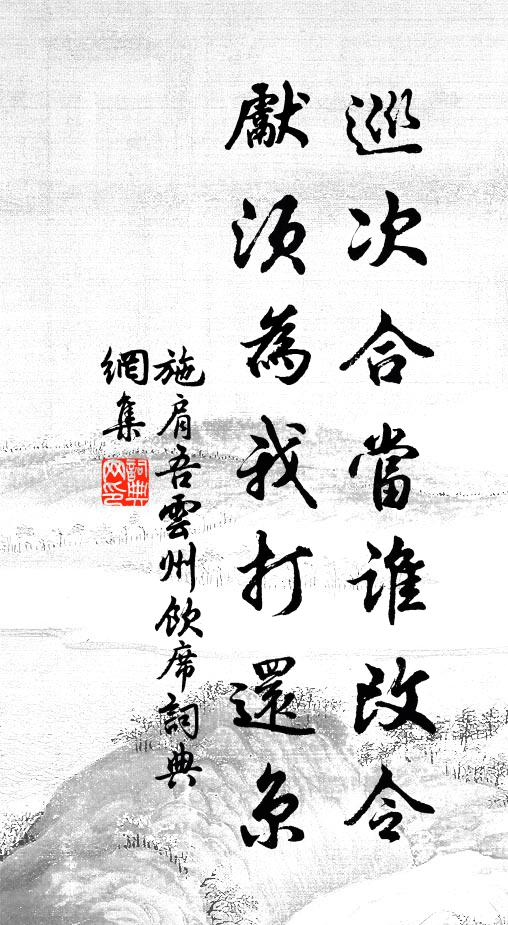 巡次合當誰改令
獻須為我打還京
施肩吾雲州飲席詞典
網集
詞典
网印